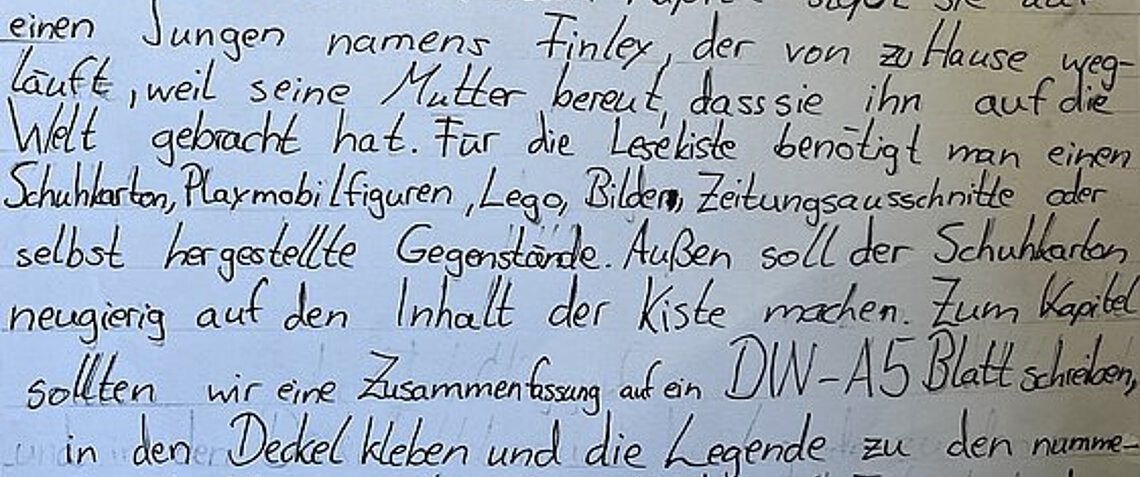 einen Jungen namens Finley, der von zu Hause weg-
läuft, weil seine Mutter bereut, dass sie ihn auf die
Welt gebracht hat. Für die Lesekiste benötigt man einen
Schuhkarton, Playmobilfiguren, Lego, Bilder, Zeitungsausschnitte oder
selbst hergestellte Gegenstände. Außen soll der Schuhkarton
neugierig auf den Inhalt der Kiste machen. Zum Kapitel
sollten wir eine Zusammenfassung auf ein DIN-A5 Blatt schreiben,
in den Deckel kleben und die Legende zu den numme-